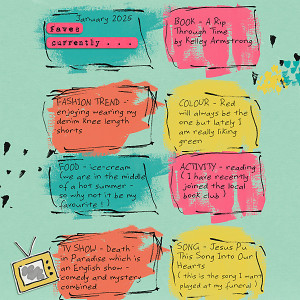 January 2025
faves
currently . . .
BOOK - A Rip
Through Time
by Kelley Armstrong
FASHION TREND -
enjoying wearing my
denim knee length
shorts
COLOUR - Red
will always be the
one but lately I
am really liking
green
FOOD - ice-cream
(we are in the middle
of a hot summer -
so why not it be my
favourite ! )
ACTIVITY - reading
( I have recently
joined the local
book club )
TV SHOW - Death
in Paradise which is
an English show -
comedy and mystery
combined
SONG - Jesus Put
This Song Into Our
Hearts
( this is the song I want
played at my funeral )